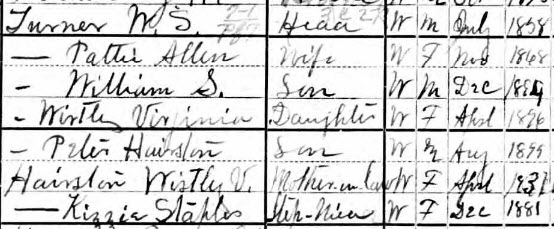 Turner W. S. Head W M July 1858
— Pattie Allen Wife W F Nov 1868
- William S. Son W M Dec 1894
- Wistley Virginia Daughter W F Apl 1896
- Peter Hairston Son W M Aug 1899
Hairston Wistley V. Mother in law W F Apl 1831
— Kizzie Staples Step-Niece W F Dec 1881